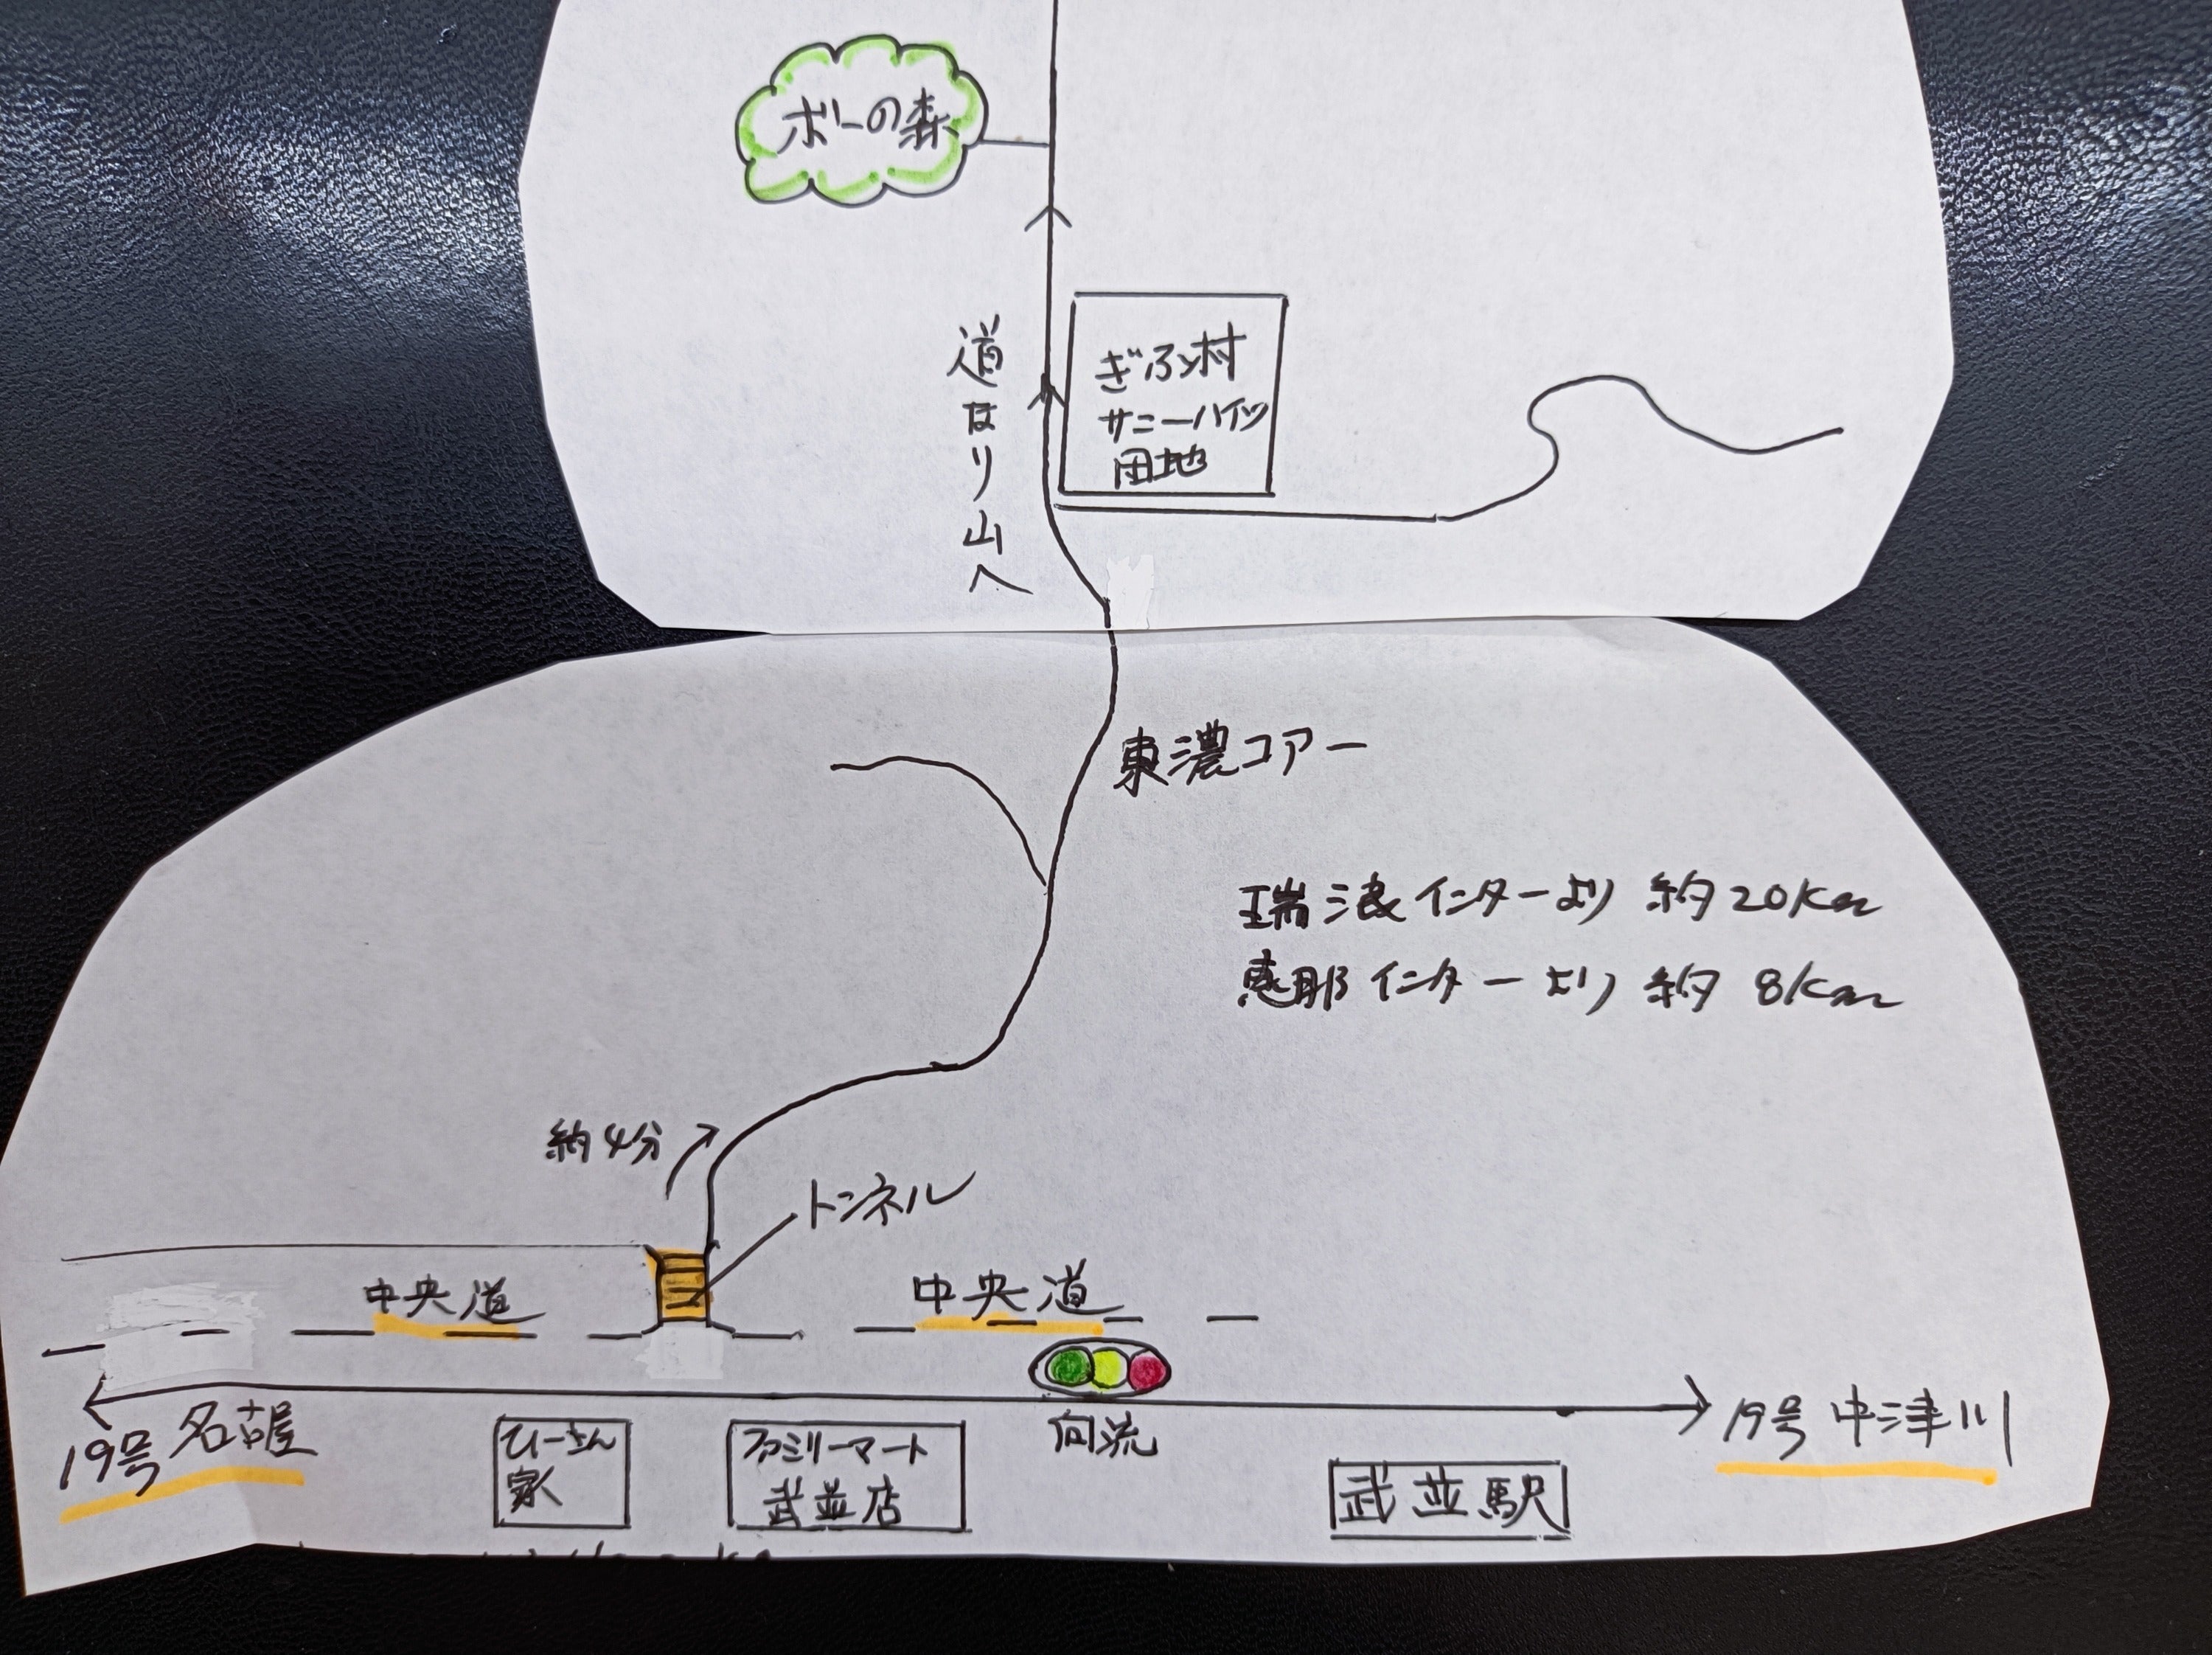 ボーの森
道なり山へ
ぎふ村
サニーハイツ
団地
東濃コアー
瑞浪インターより 約20Km
恵那インターより 約 8Km
約4分
トンネル
中央道
中央道
19号 名古屋
ひーさん
家
ファミリーマート
武並店
向流
武並駅
19号 中津川